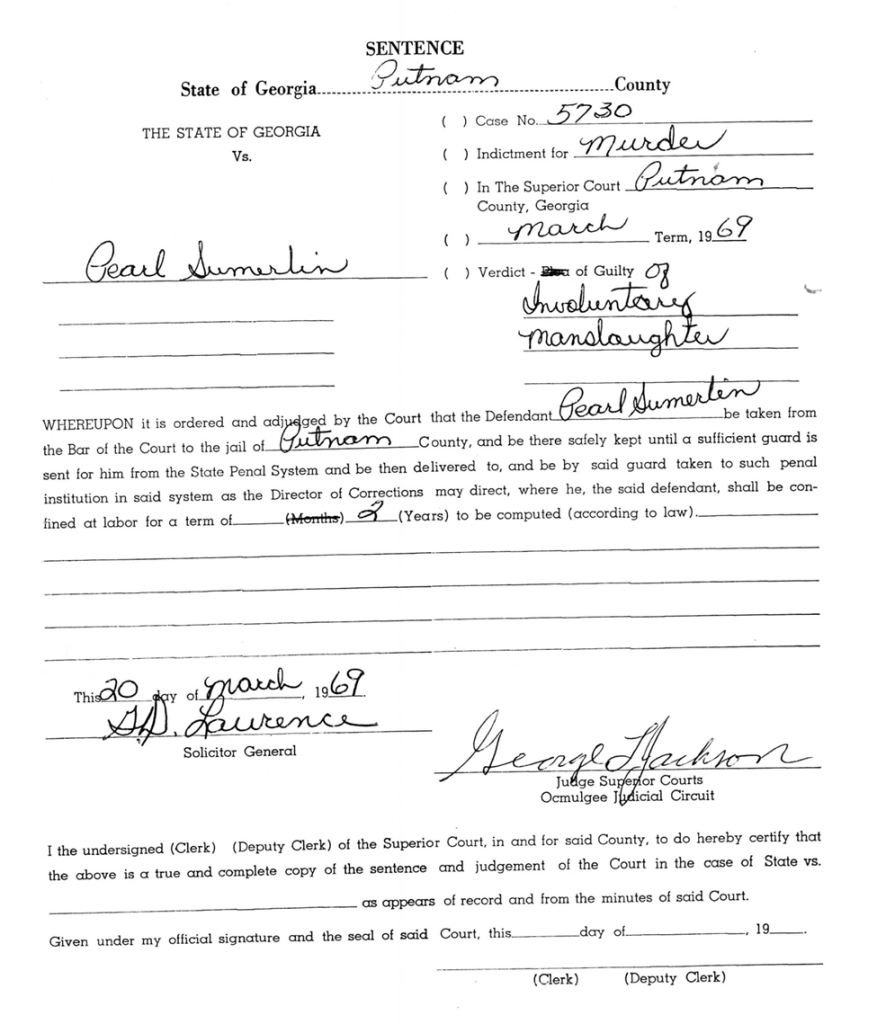 SENTENCE
State of Georgia Putnam County
THE STATE OF GEORGIA
Vs.
Pearl Sumerlin
( ) Case No. 5730
( ) Indictment for Murder
( ) In The Superior Court Putnam
County, Georgia
( ) March Term, 1969
( ) Verdict - of Guilty of
Involuntary
Manslaughter
WHEREUPON it is ordered and adjudged by the Court that the Defendant Pearl Sumerlin be taken from
the Bar of the Court to the jail of Putnam County, and be there safely kept until a sufficient guard is
sent for him from the State Penal System and be then delivered to, and be by said guard taken to such penal
institution in said system as the Director of Corrections may direct, where he, the said defendant, shall be con-
fined at labor for a term of (Months) 2 (Years) to be computed (according to law).
This 20 day of March, 1969.
Lawrence
Solicitor General
George Jackson
Judge Superior Courts
Ocmulgee Judicial Circuit
I the undersigned (Clerk) (Deputy Clerk) of the Superior Court, in and for said County, to do hereby certify that
the above is a true and complete copy of the sentence and judgement of the Court in the case of State vs.
as appears of record and from the minutes of said Court.
Given under my official signature and the seal of said Court, this day of , 19 .
(Clerk) (Deputy Clerk)